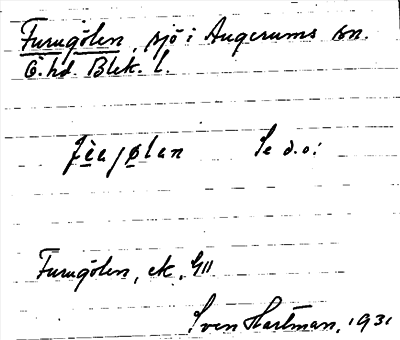 Furugölen, sjö i Augerums sn.
Ö. hd. Blek. l.
Se d.o.:
Furugölen, ek. 411
Sven Hartman, 1931